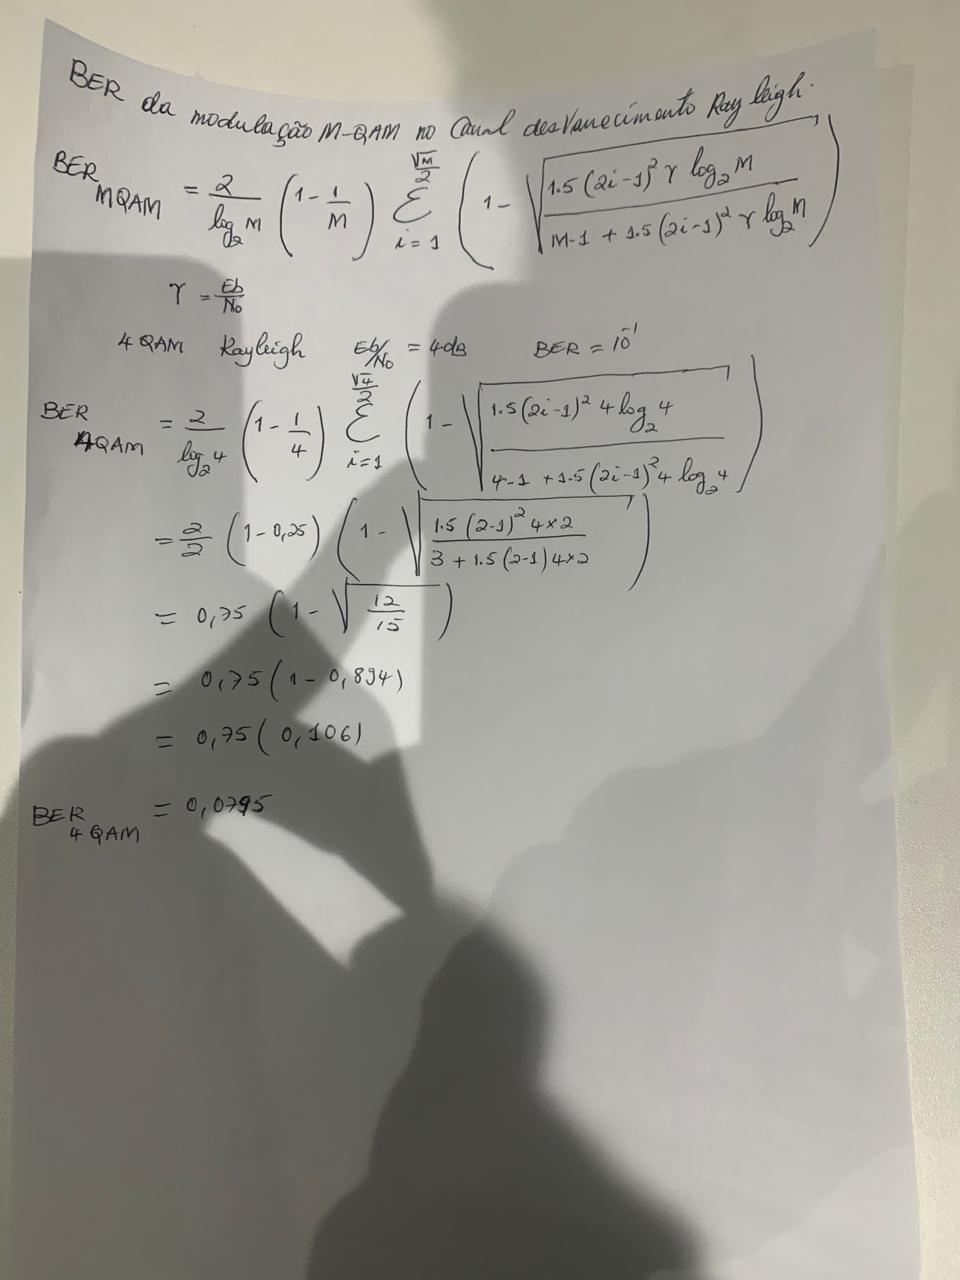 BER da modulação M-QAM no Canal desvanecimento Rayleigh.
BER MQAM = 2/log₂M (1 - 1/M) Σ_{i=1}^{√M/2} (1 - √(1.5(2i-1)² γ log₂M / M-1 + 1.5(2i-1)² γ log₂M))
γ = Eb/No
4QAM Rayleigh Eb/No = 4dB BER = 10⁻¹
BER 4QAM = 2/log₂4 (1 - 1/4) Σ_{i=1}^{√4/2} (1 - √(1.5(2i-1)² 4 log₂4 / 4-1 + 1.5(2i-1)² 4 log₂4))
= 2/2 (1 - 0,25) (1 - √(1.5(2-1)² 4×2 / 3 + 1.5(2-1)4×2))
= 0,75 (1 - √(12/15))
= 0,75(1 - 0,894)
= 0,75(0,106)
BER 4QAM = 0,0795